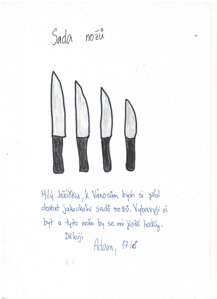 Sada nožů
Milý Ježíšku, k Vánocům bych si přál
dostat jakoukoliv sadu nožů. Vybavuji si
byt a tyto nože by se mi jistě hodily.
Děkuji
Adam, 17 let